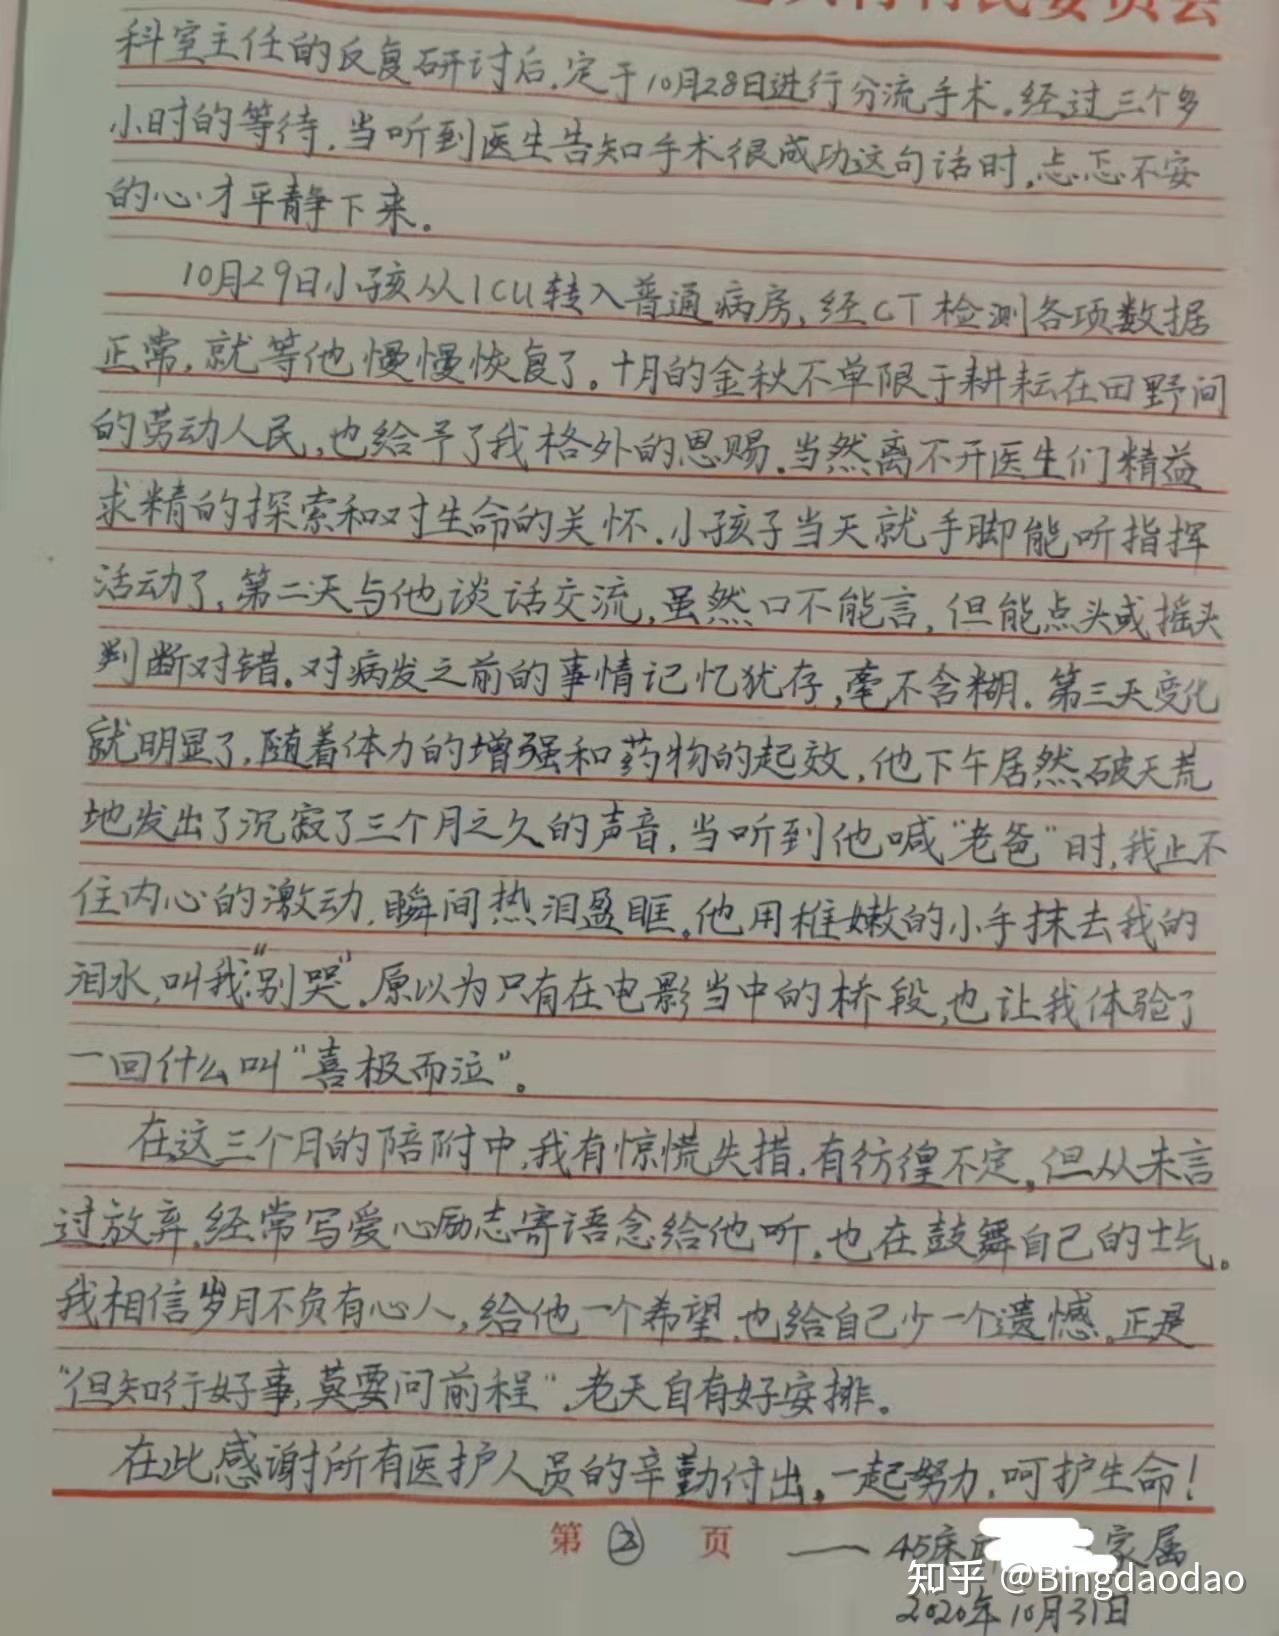 村村民委员会
科室主任的反复研讨后,定于10月28日进行分流手术。经过三个多
小时的等待,当听到医生告知手术很成功这句话时,忐忑不安
的心才平静下来。
10月29日小孩从ICU转入普通病房,经CT检测各项数据
正常,就等他慢慢恢复了。十月的金秋不单限于耕耘在田野间
的劳动人民,也给予了我格外的恩赐.当然离不开医生们精益
求精的探索和对生命的关怀.小孩子当天就手脚能听指挥
活动了,第二天与他谈话交流,虽然口不能言,但能点头或摇头
判断对错。对病发之前的事情记忆犹存,毫不含糊.第三天变化
就明显了,随着体力的增强和药物的起效,他下午居然破天荒
地发出了沉寂了三个月之久的声音,当听到他喊"老爸"时,我止不
住内心的激动,瞬间热泪盈眶。他用稚嫩的小手抹去我的
泪水,叫我:"别哭"。原以为只有在电影当中的桥段,也让我体验了
一回什么叫"喜极而泣"。
在这三个月的陪附中,我有惊慌失措,有彷徨不定,但从未言
过放弃,经常写爱心励志寄语念给他听,也在鼓舞自己的士气。
我相信岁月不负有心人,给他一个希望,也给自己少一个遗憾。正是
"但知行好事,莫要问前程",老天自有好安排。
在此感谢所有医护人员的辛勤付出,一起努力,呵护生命!
第 ② 页
—— 45床 家属
知乎 @Bingdaodao
2020年10月31日